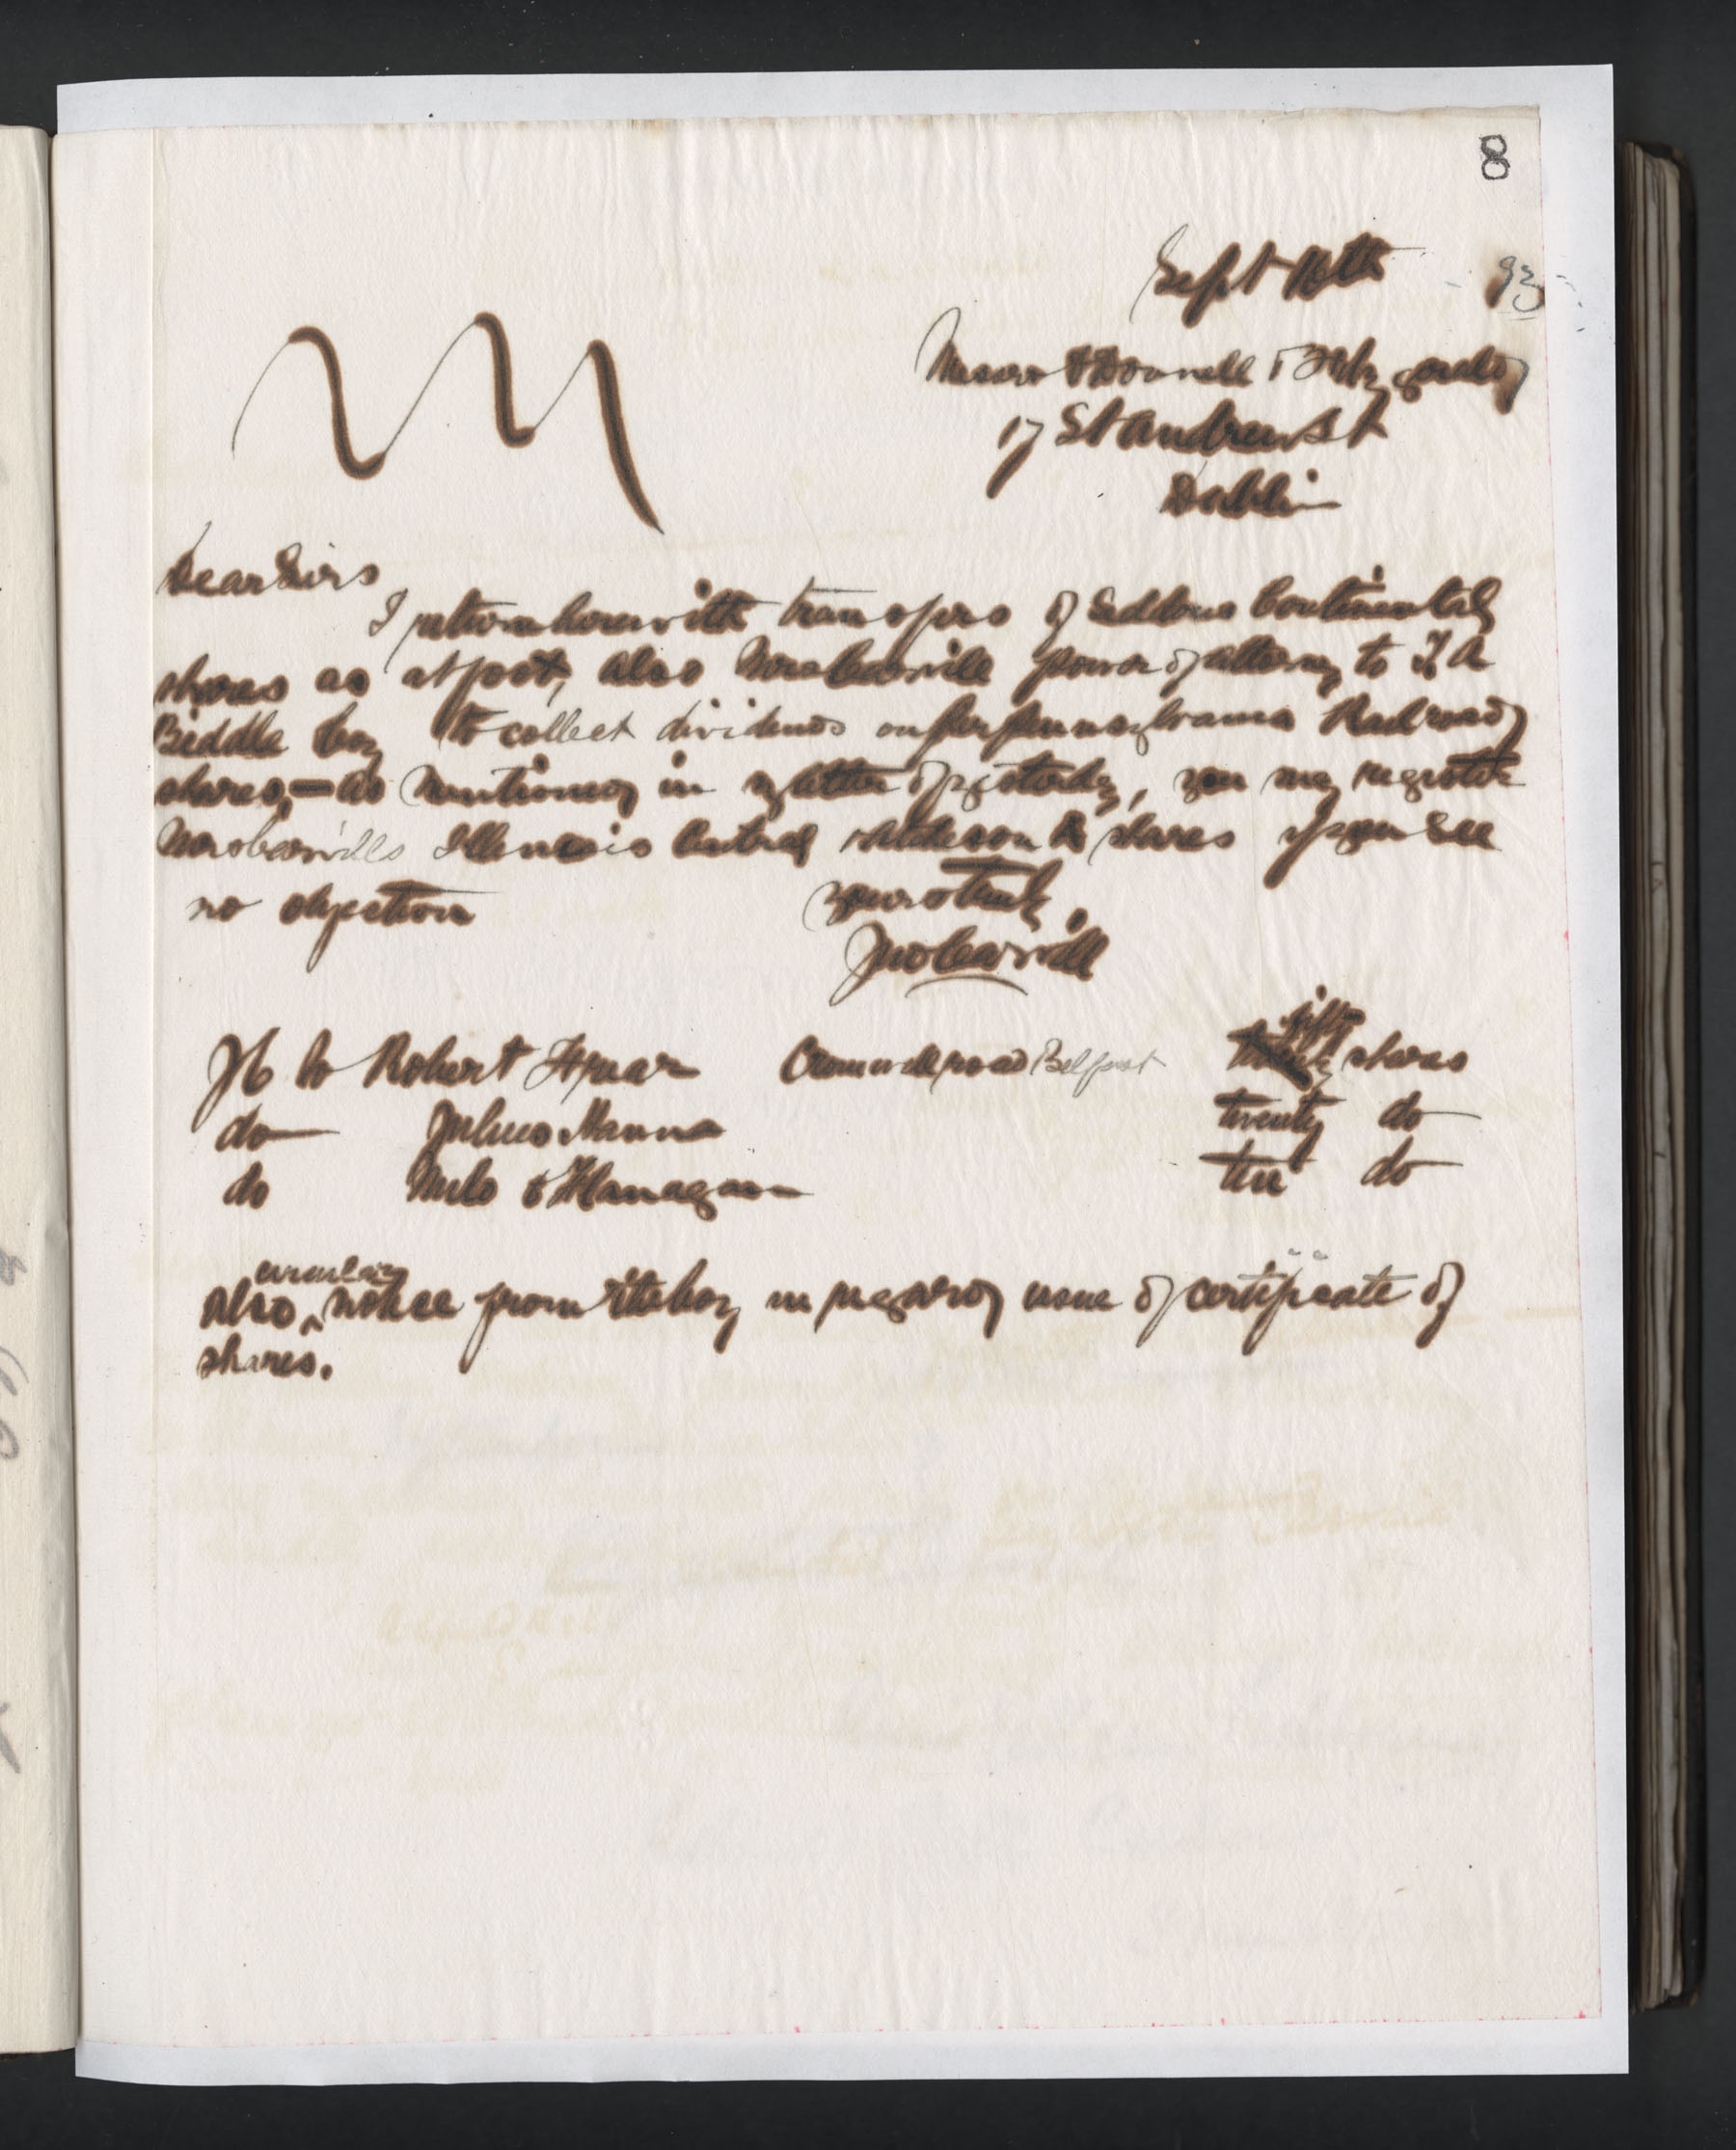 8
Sept 16th 93
Messrs O'Donnell & Fitzgerald
17 St Andrew St
Dublin
Dear Sirs
I return herewith transfers of Seddons Continental
shares as at foot, also Mrs Carvill power of attorney to T A
Biddle Coy to collect dividends on her Pennsylvania Railroad
shares, — as mentioned in my letter of yesterday, you may register
Mrs Carvills Illinois Central shares if you see
no objection
yours truly
Jno Carvill
JC to Robert Spear Cromwell road Belfast fifty shares
do Julius Hanna twenty do
do Milo O'Flanagan ten do
also circular notice from the Coy in regard issue of certificate of
shares.